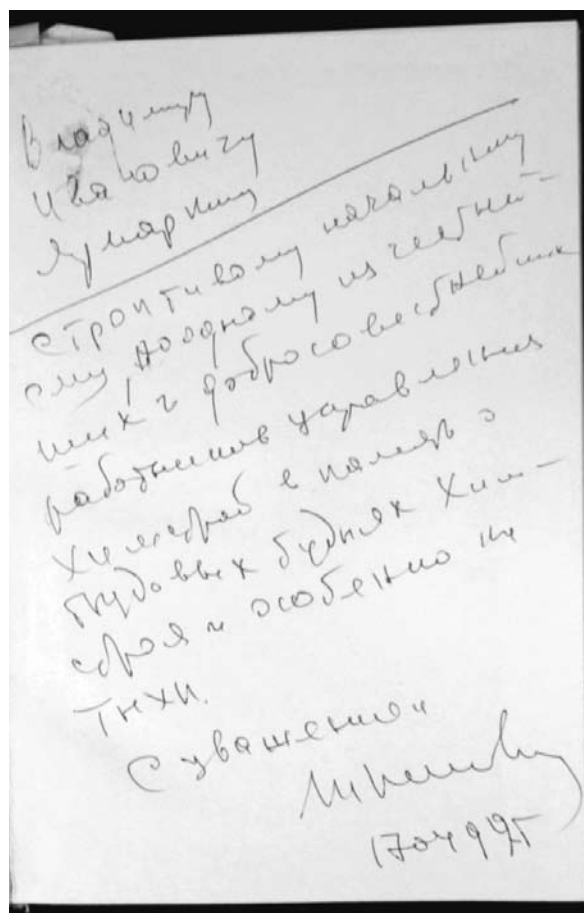 Владимиру
Ивановичу
Ярмаркину
строптивому начальнику
СМУ, но одному из честней-
ших и добросовестнейших
работников управления
Химстрой в память о
трудовых буднях Хим-
строя и особенно на
ТНХК.
С уважением